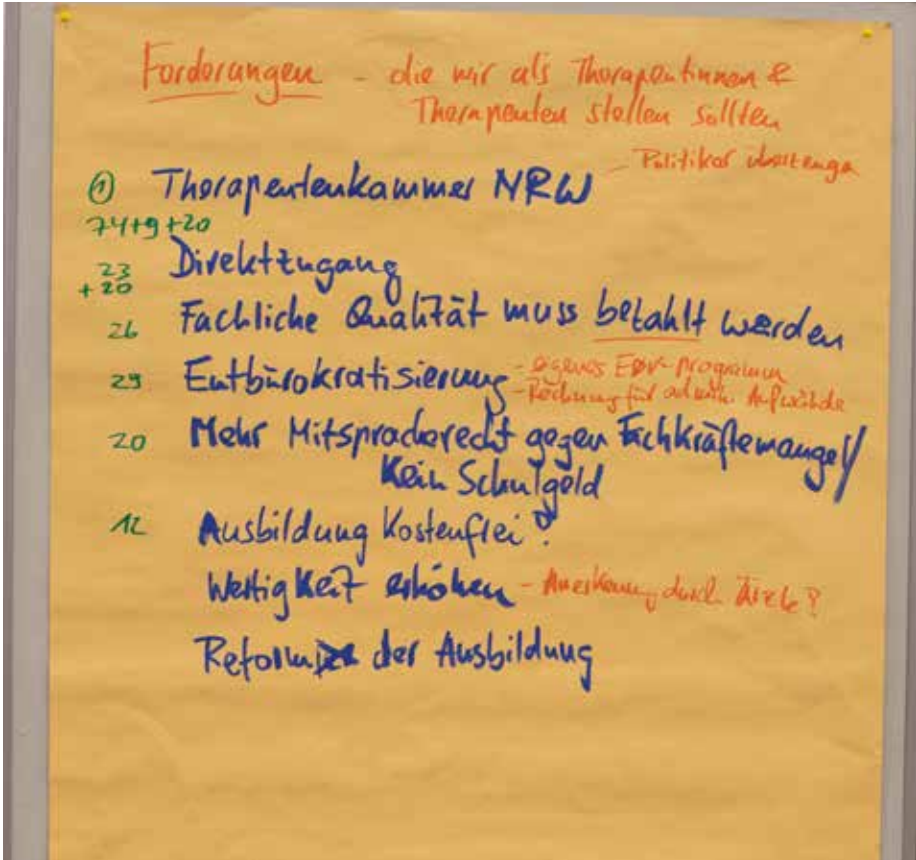 Forderungen - die wir als Therapeutinnen &
Therapeuten stellen sollten
- Politiker überzeuge
① Therapeutenkammer NRW
74+9+20
23 Direktzugang
+20
26 Fachliche Qualität muss bezahlt werden
29 Entbürokratisierung - eigenes EDV-programm
- Rechnung für admin. Aufwände
20 Mehr Mitspracherecht gegen Fachkräftemangel/
Kein Schulgeld
12 Ausbildung Kostenfrei?
Wertigkeit erhöhen - Anerkennung durch Ärzte?
Reform der Ausbildung